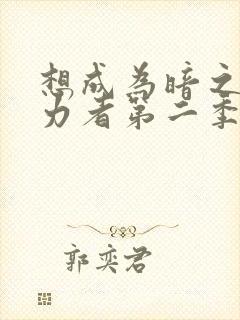 想成为暗之
力者第二季
郭奕君